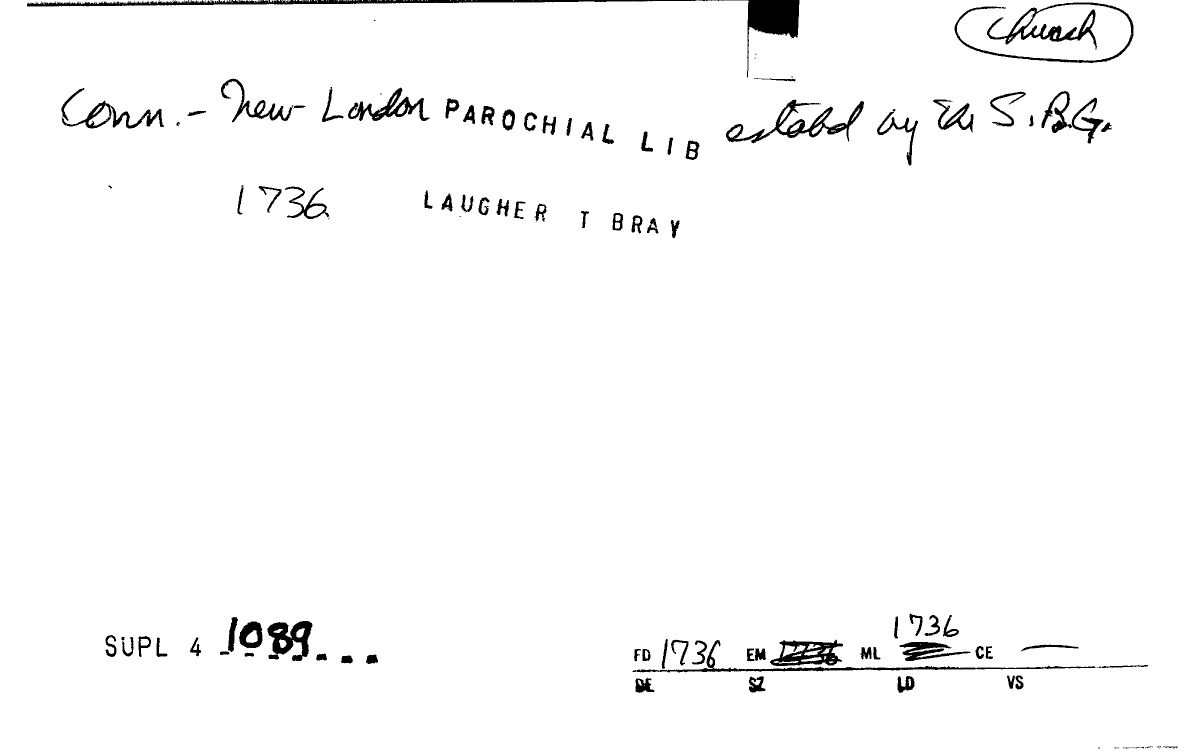 Church
Conn. - New London PAROCHIAL LIB estabd by the S.P.G.
1736 LAUGHER T BRAY
SUPL 4 1089
1736
FD 1736 EM ML CE —
DE SZ LD VS